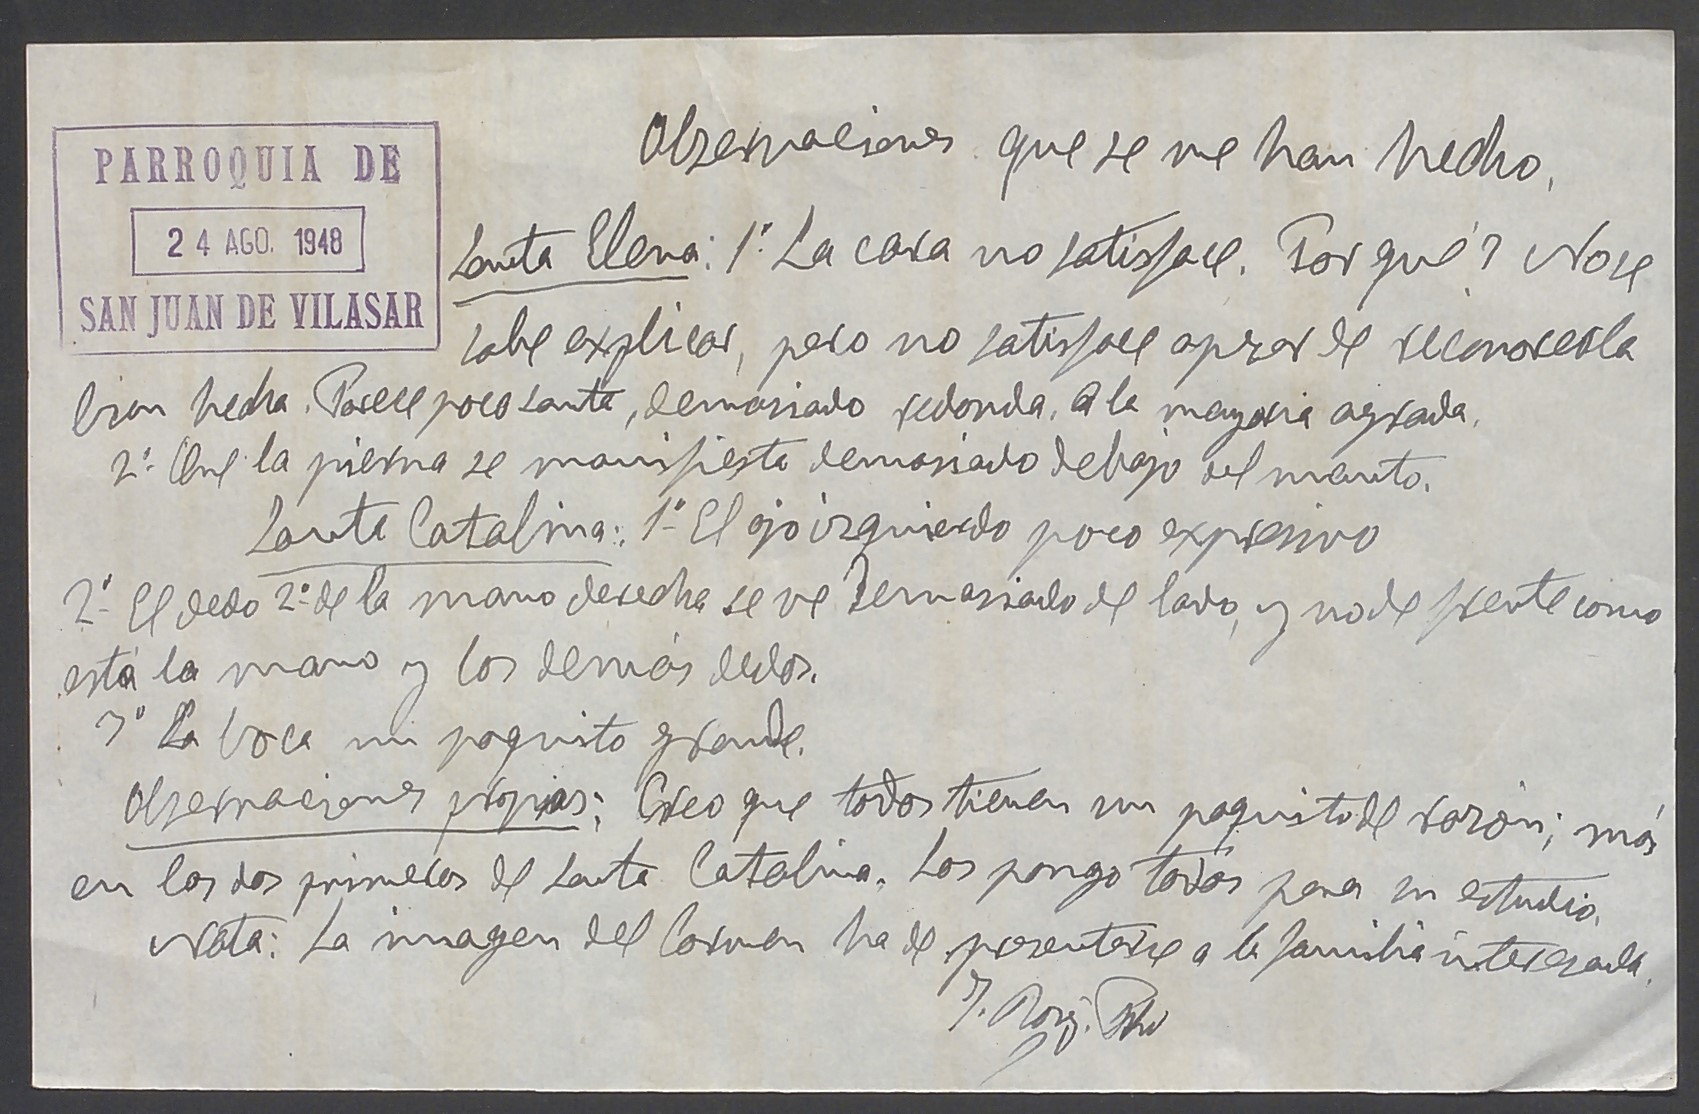 PARROQUIA DE
24 AGO. 1948
SAN JUAN DE VILASAR
Observaciones que se me han hecho.
Santa Elena: 1º La cara no satisface. Por qué? No se
sabe explicar, pero no satisface apesar de reconocerla
bien hecha. Parece poco santa, demasiado redonda. A la mayoria agrada.
2º Que la pierna se manifiesta demasiado debajo del manto.
Santa Catalina: 1º El ojo izquierdo poco expresivo
2º El dedo 2º de la mano derecha se ve demasiado de lado, y no de frente como
está la mano y los demás dedos.
3º La boca un poquito grande.
Observaciones propias: Creo que todos tienen un poquito de razón; más
en las dos primeras de Santa Catalina. Las pongo todas para su estudio.
Nota: La imagen del Carmen ha de presentarse a la familia interesada.